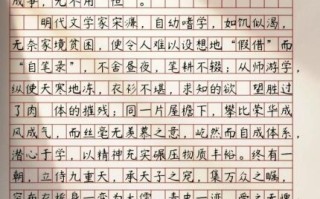 成事，无不用"恒"。
明代文学家宋濂，自幼嗜学，如饥似渴，
无奈家境贫困，使令人难以设想地"假借"而
"自笔录"，不舍昼夜，笔耕不辍；从师游学，
纵使天寒地冻，衣衫不堪，求知的欲望胜过
了肉体的摧残；同一片屋檐下，攀比荣华成
风成气，而丝毫无羡慕之意，屹然而自成体系，
潜心于学，以精神充实碾压物质丰裕。终有一
朝，立侍九重天，承天子之宠，集万众之瞩，